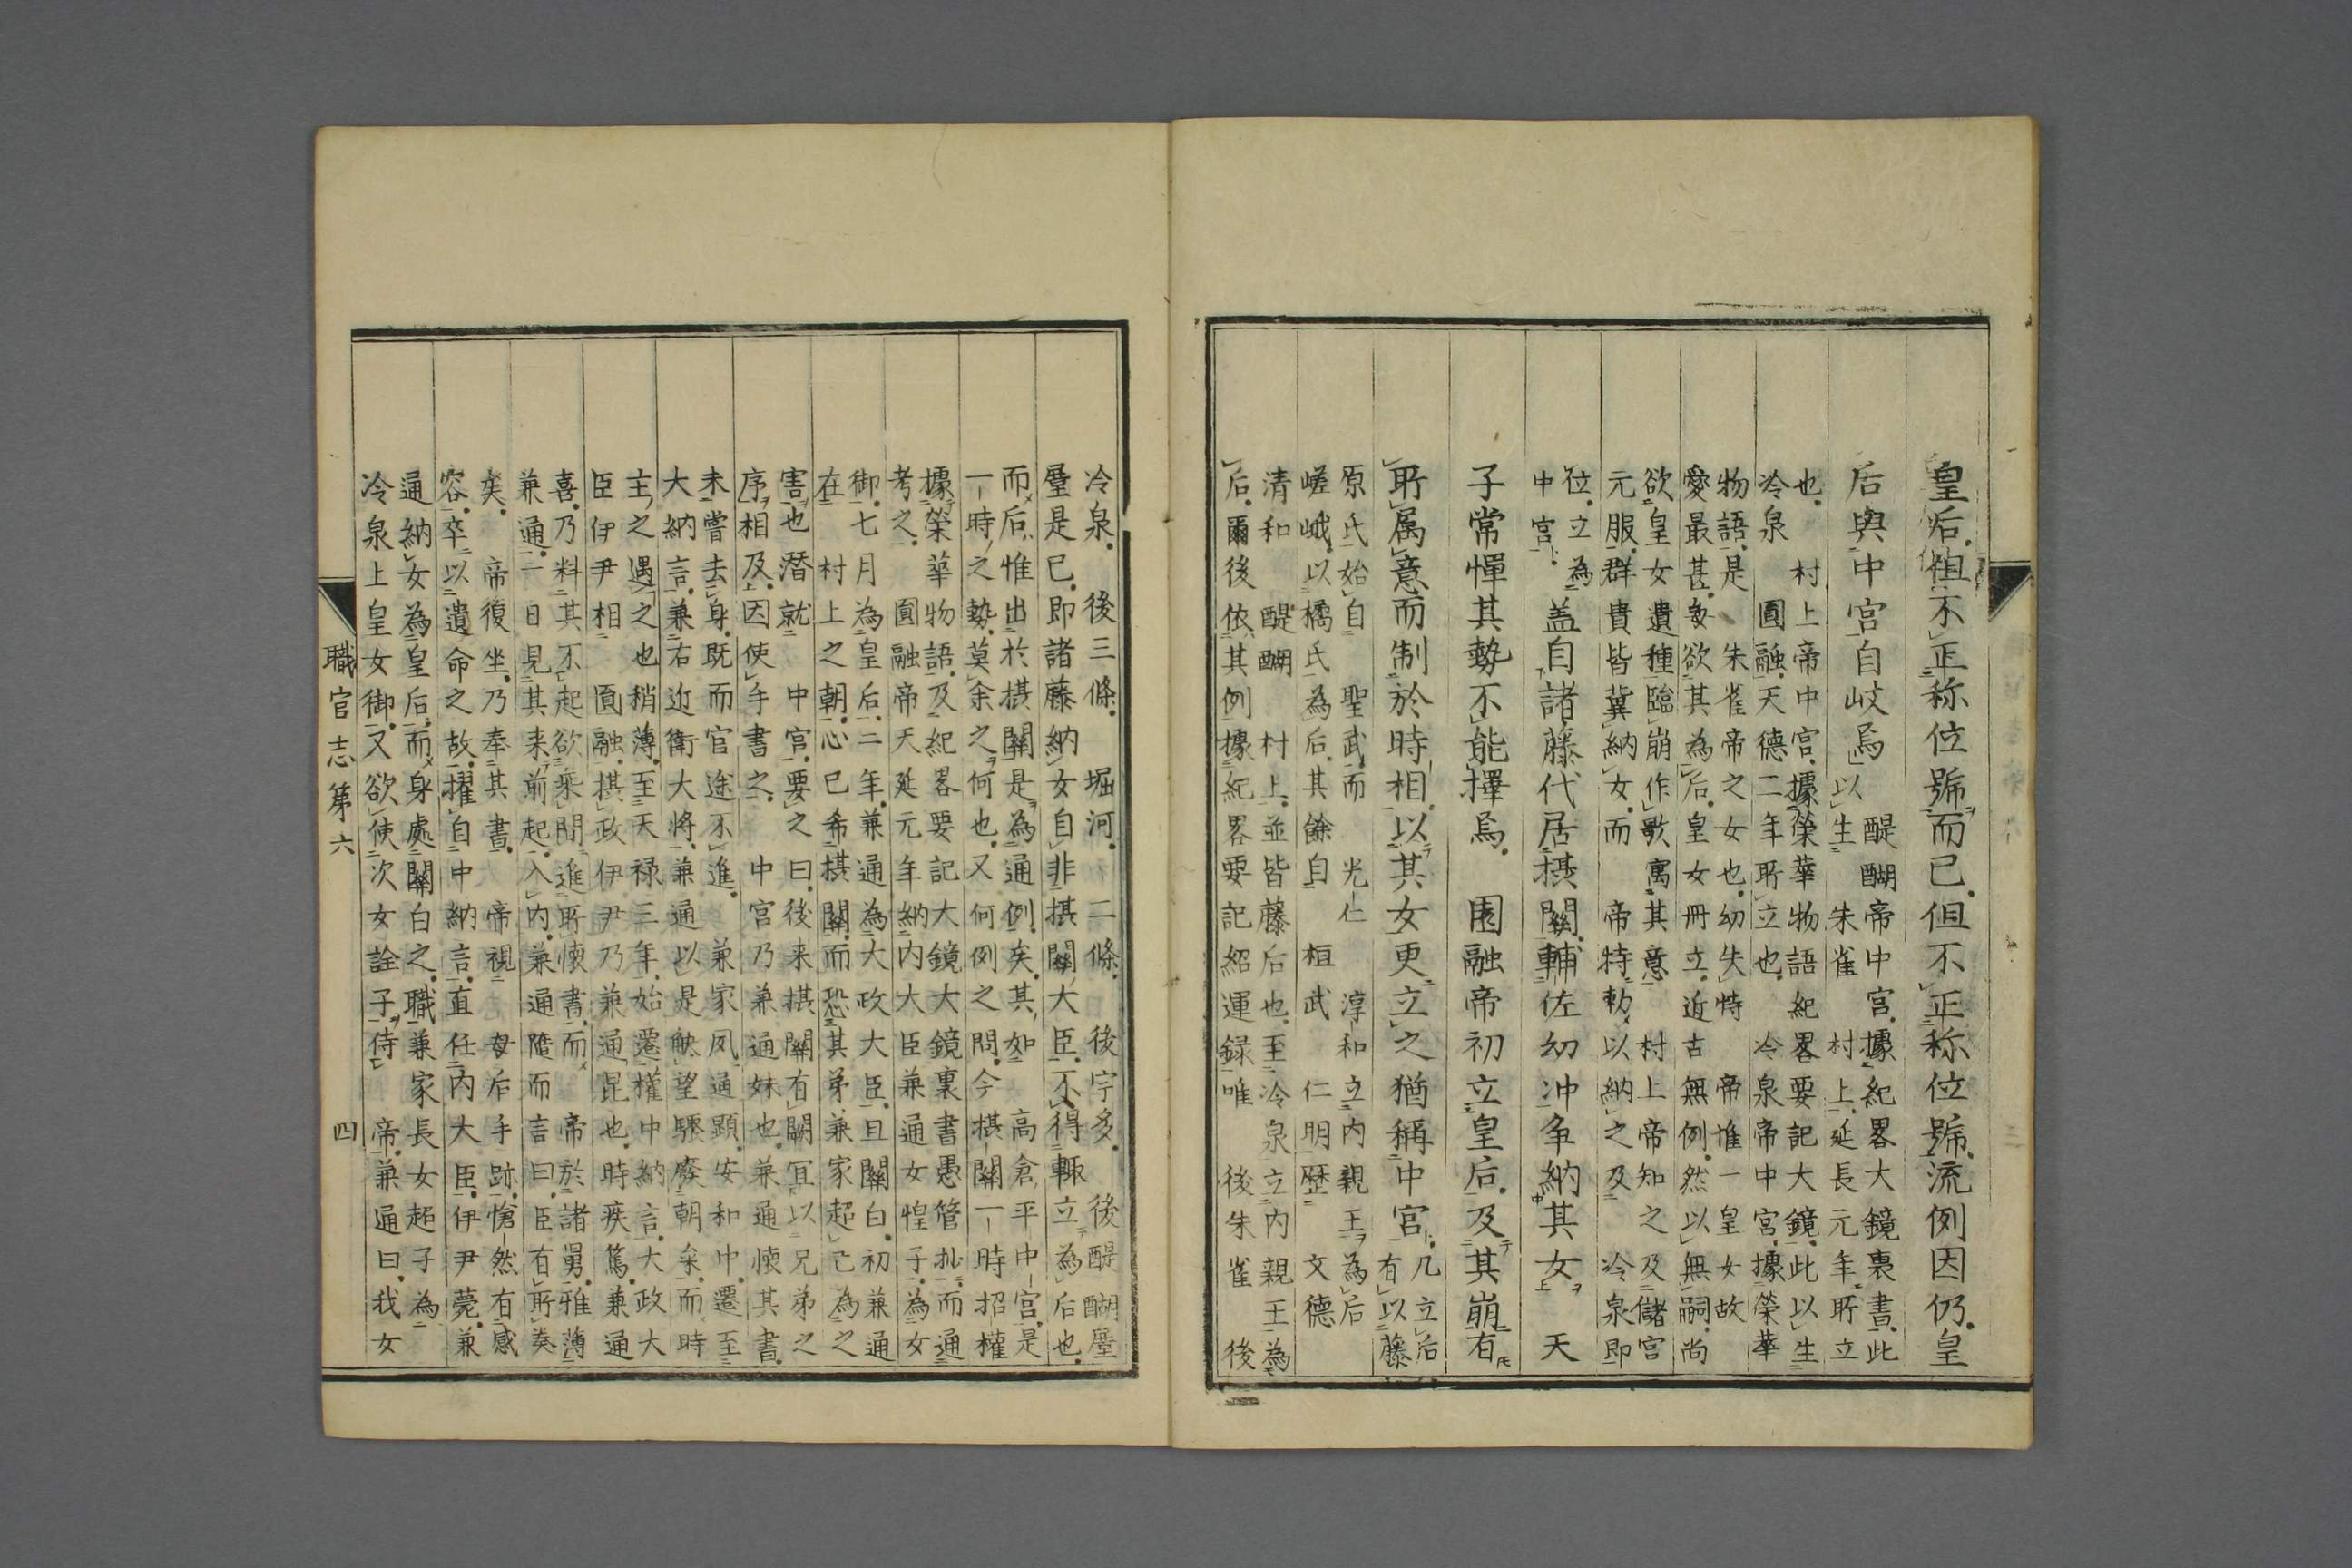 皇后但不正称位號而已但不正称位號流例因仍皇
后與中宮自岐焉以生
醍醐帝中宮據紀畧大鏡裏書此
朱雀村上延長元年所立
也村上帝中宮據榮華物語紀畧要記大鏡此以生
冷泉圓融天德二年所立也冷泉帝中宮據榮華
物語是朱雀帝之女也幼失恃帝惟一皇女故
愛最甚欲其為后皇女冊立近古無例然以無嗣尚
欲皇女遺種臨崩作歌寓其意村上帝知之及儲宮
元服群貴皆冀納女而帝特勅以納之及冷泉即
位立為
中宮
盖自諸藤代居摂關輔佐幼冲争納其女天
子常憚其勢不能擇焉圓融帝初立皇后及其崩有
所属意而制於時相以其女更立之猶稱中宮
凡立后
有以藤
原氏始自聖武而光仁淳和立内親王為后
嵯峨以橘氏為后其餘自桓武仁明歷文德
清和醍醐村上並皆藤后也至冷泉立内親王為
后爾後依其例據紀畧要記紹運録唯後朱雀後
冷泉後三條堀河二條後宇多後醍醐歷
歷是已即諸藤納女自非摂關大臣不得輙立為后也
而后惟出於摂關是為通例矣其如高倉平中宮是
一時之勢莫余之何也又何例之問今摂關一時招權
據榮華物語及紀畧要記大鏡大鏡裏書愚管抄而通
考之圓融帝天延元年納内大臣兼通女惶子為女
御七月為皇后二年兼通為大政大臣且關白初兼通
在村上之朝心已希摂關而恐其弟兼家起己為之
害也潛就中宮要之曰後来摂關有闕宜以兄弟之
序相及因使手書之中宮乃兼通妹也兼通懐其書
未嘗去身既而官途不進兼家夙通顕安和中遷至
大納言兼右近衛大将兼通以是觖望驟廢朝糸而時
主之遇之也稍薄至天禄三年始遷權中納言大政大
臣伊尹相圓融摂政伊尹乃兼通昆也時疾篤兼通
喜乃料其不起欲乘間進所懐書而帝於諸舅雅薄
兼通一日見其来前起入内兼通隨而言曰臣有所奏
矣帝復坐乃奉其書帝視母后手跡愴然有感
容卒以遺命之故擢自中納言直任内大臣伊尹薨兼
通納女為皇后而身處關白之職兼家長女超子為
冷泉上皇女御又欲使次女詮子侍帝兼通曰我女
職官志第六
四